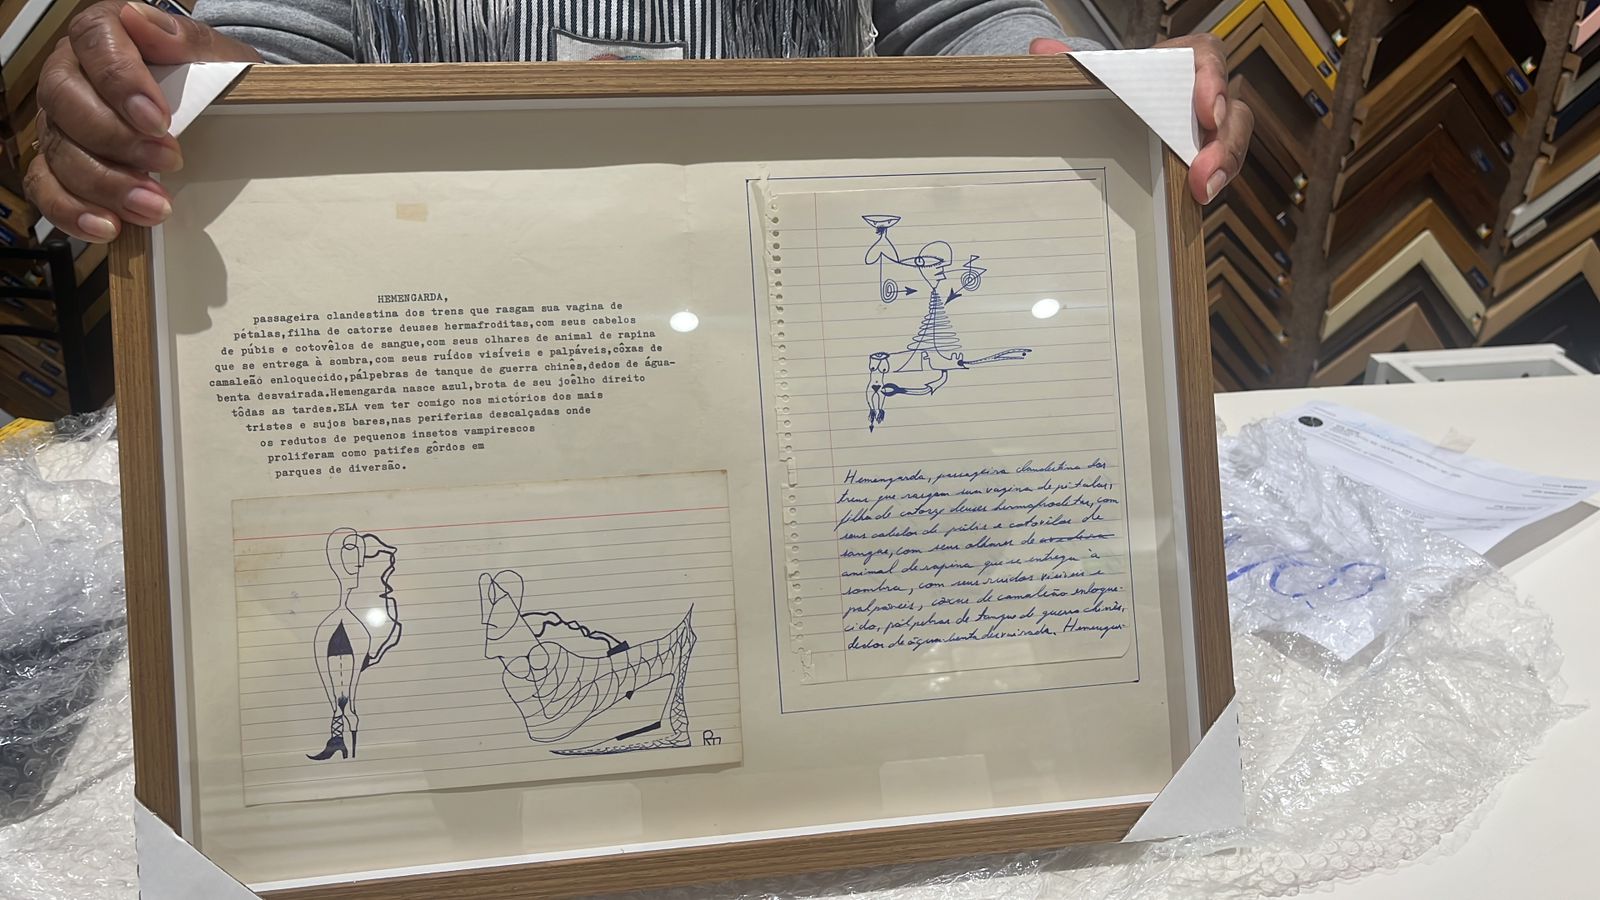 HEMENGARDA,
passageira clandestina dos trens que rasgam sua vagina de
pétalas,filha de catorze deuses hermafroditas,com seus cabelos
de púbis e cotovêlos de sangue,com seus olhares de animal de rapina
que se entrega à sombra,com seus ruídos visíveis e palpáveis,côxas de
camaleão enloquecido,pálpebras de tanque de guerra chinês,dedos de água-
benta desvairada.Hemengarda nasce azul,brota de seu joêlho direito
tôdas as tardes.ELA vem ter comigo nos mictórios dos mais
tristes e sujos bares,nas periferias descalçadas onde
os redutos de pequenos insetos vampirescos
proliferam como patifes gôrdos em
parques de diversão.
Hemengarda, passageira clandestina dos
trens que rasgam sua vagina de pétalas,
filha de catorze deuses hermafroditas, com
seus cabelos de púbis e cotovêlos de
sangue, com seus olhares de
animal de rapina que se entrega à
sombra, com seus ruídos visíveis e
palpáveis, côxas de camaleão enloque-
cido, pálpebras de tanque de guerra chinês,
dedos de água-benta desvairada. Hemengar-